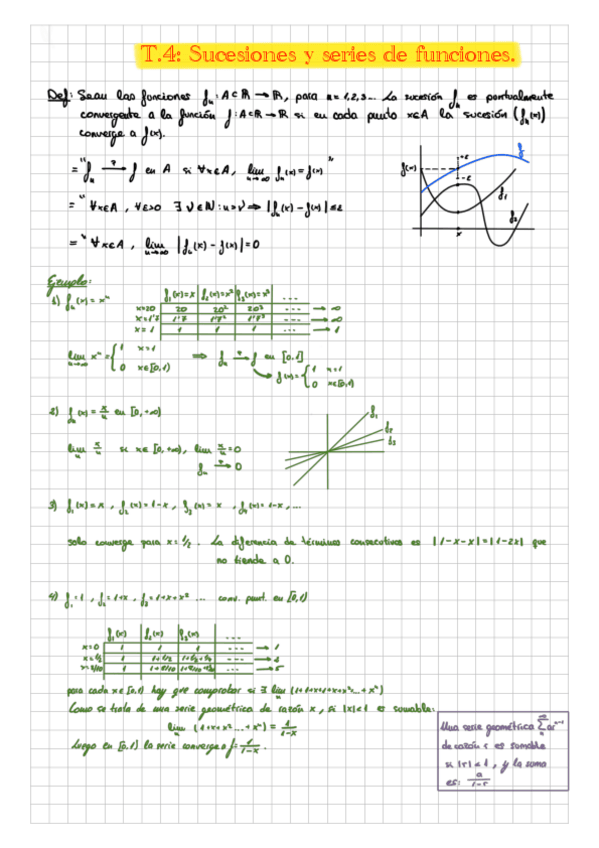 T.4: Sucesiones y series de funciones.
Def: Sean las funciones fₙ: A⊂ℝ → ℝ, para n=1,2,3... La sucesión fₙ es puntualmente
convergente a la función f: A⊂ℝ → ℝ si en cada punto x∈A la sucesión (fₙ(x))
converge a f(x).
≡ "fₙ →ᵖ f en A si ∀x∈A, lim n→∞ fₙ(x)=f(x)"
≡ "∀x∈A, ∀ε>0 ∃ν∈ℕ: n>ν ⇒ |fₙ(x)-f(x)|≤ε
≡ "∀x∈A, lim n→∞ |fₙ(x)-f(x)|=0
f
f(x)
+ε
-ε
f₁
f₂
x
Ejemplo:
1) fₙ(x)=xⁿ
f₁(x)=x f₂(x)=x² f₃(x)=x³ ...
x=20 20 20² 20³ ... → ∞
x=1'7 1'7 1'7² 1'7³ ... → ∞
x=1 1 1 1 ... → 1
lim n→∞ xⁿ = { 1 x=1 ⇒ fₙ →ᵖ f en [0,1]
0 x∈[0,1) → f(x)= { 1 x=1
0 x∈[0,1)
2) fₙ(x)= x/n en [0,+∞)
lim n x/n si x∈[0,+∞), lim n x/n = 0
fₙ →ᵖ 0
f₁
f₂
f₃
3) f₁(x)=x, f₂(x)=1-x, f₃(x)=x, f₄(x)=1-x,...
solo converge para x=1/2. La diferencia de términos consecutivos es |1-x-x|=|1-2x| que
no tiende a 0.
4) f₁=1, f₂=1+x, f₃=1+x+x² ... conv. punt. en [0,1)
f₁(x) f₂(x) f₃(x) ...
x=0 1 1 1 ... → 1
x=1/2 1 1+1/2 1+1/2+1/4 ...
x=8/10 1 1+8/10 ... → 5
para cada x∈[0,1) hay que comprobar si ∃ lim
Como se trata de una serie geométrica de razón x, si |x|<1 es sumable:
lim n (1+x+x²...+xⁿ) = 1/1-x
Luego en [0,1) la serie converge a f= 1/1-x.
Una serie geométrica ∑ arⁿ⁻¹
de razón r es sumable
si |r|<1, y la suma
es: a/1-r